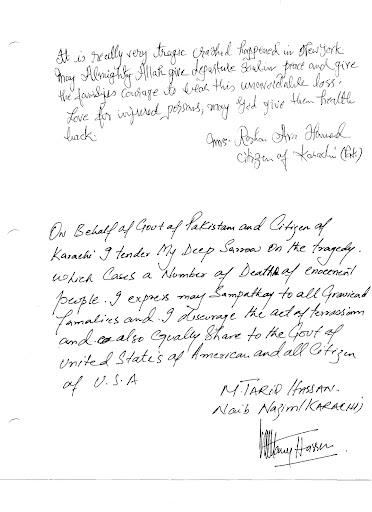 It is really very tragic crashed happened in New York
may Almighty Allah give departure Soul in peace and give
the familyes courage to bear this unavoidable loss.
Love for injured persons, may God give them health
back.
Mrs. Ara Hameed
Citizen of Karachi (Pak)
On Behalf of Govt of Pakistan and Citizen of
Karachi I tender My Deep Sarrow on the tragedy.
which Cases a Number of Death of enocennt
people. I express may Sampathay to all Graviead
Famalies and I discurage the act of terrosism
and also Equally Share to the Govt of
United States of American and all Citizen
of U.S.A
M. TARIQ HASSAN.
Naib Nazim (KARACHI)